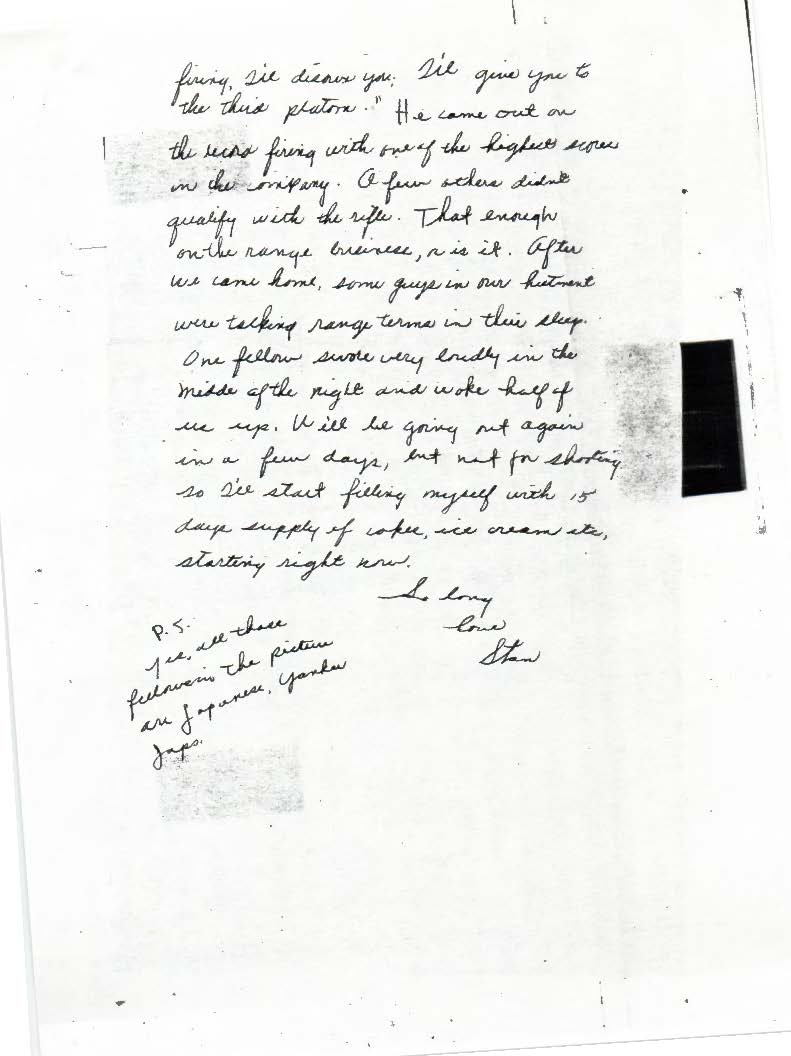 firing, I'll disown you; I'll give you to
the third platoon." He came out on
the record firing with one of the highest scores
in the company. A few others didnt
qualify with the rifle. That enough
on the range business, or is it. After
we came home, some guys in our hutment
were talking range terms in their sleep.
One fellow swore very loudly in the
midde of the night and woke half of
us up. Will be going out again
in a few days, but not for shooting
so I'll start filling myself with 15
days supply of cokes, ice cream etc,
starting right now.
So long
love
Stan
P.S.
Yes, all those
fellows in the picture
are Japanese, Yankee
Japs.